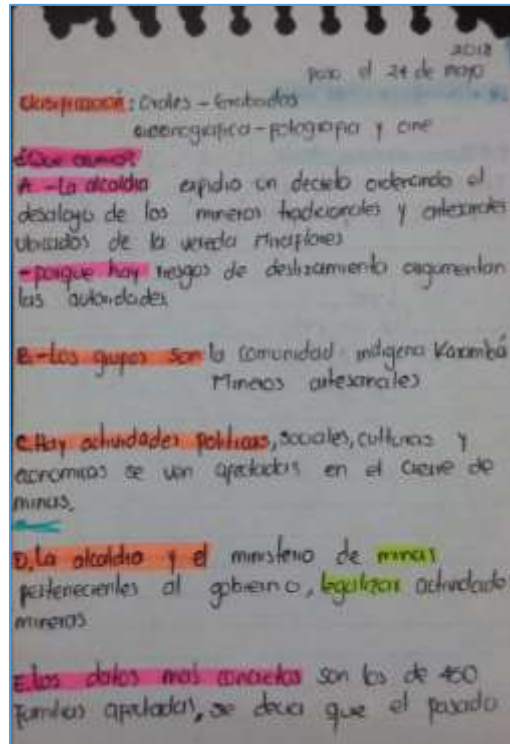 2018
paso el 24 de mayo
Clasificación: Orales - Grabados
- fotografia y cine
¿Que ocurrio?
A - La alcaldia expidio un decreto ordenando el
desalogo de los mineros tradicionales y artesanales
ubicados de la vereda Miraflores
- porque hay riesgos de deslizamiento argumentan
las autoridades.
B.- Los grupos son la comunidad indigena Karambá
Mineros artesanales
C. Hay actividades politicas, sociales, culturas y
economicas se ven afectadas en el cierre de
minas.
D. La alcaldia y el ministerio de minas
pertenecientes al gobierno, legalizar actividade
mineros
E. los datos mas concretos son los de 450
familias afectadas, se decia que el pasado